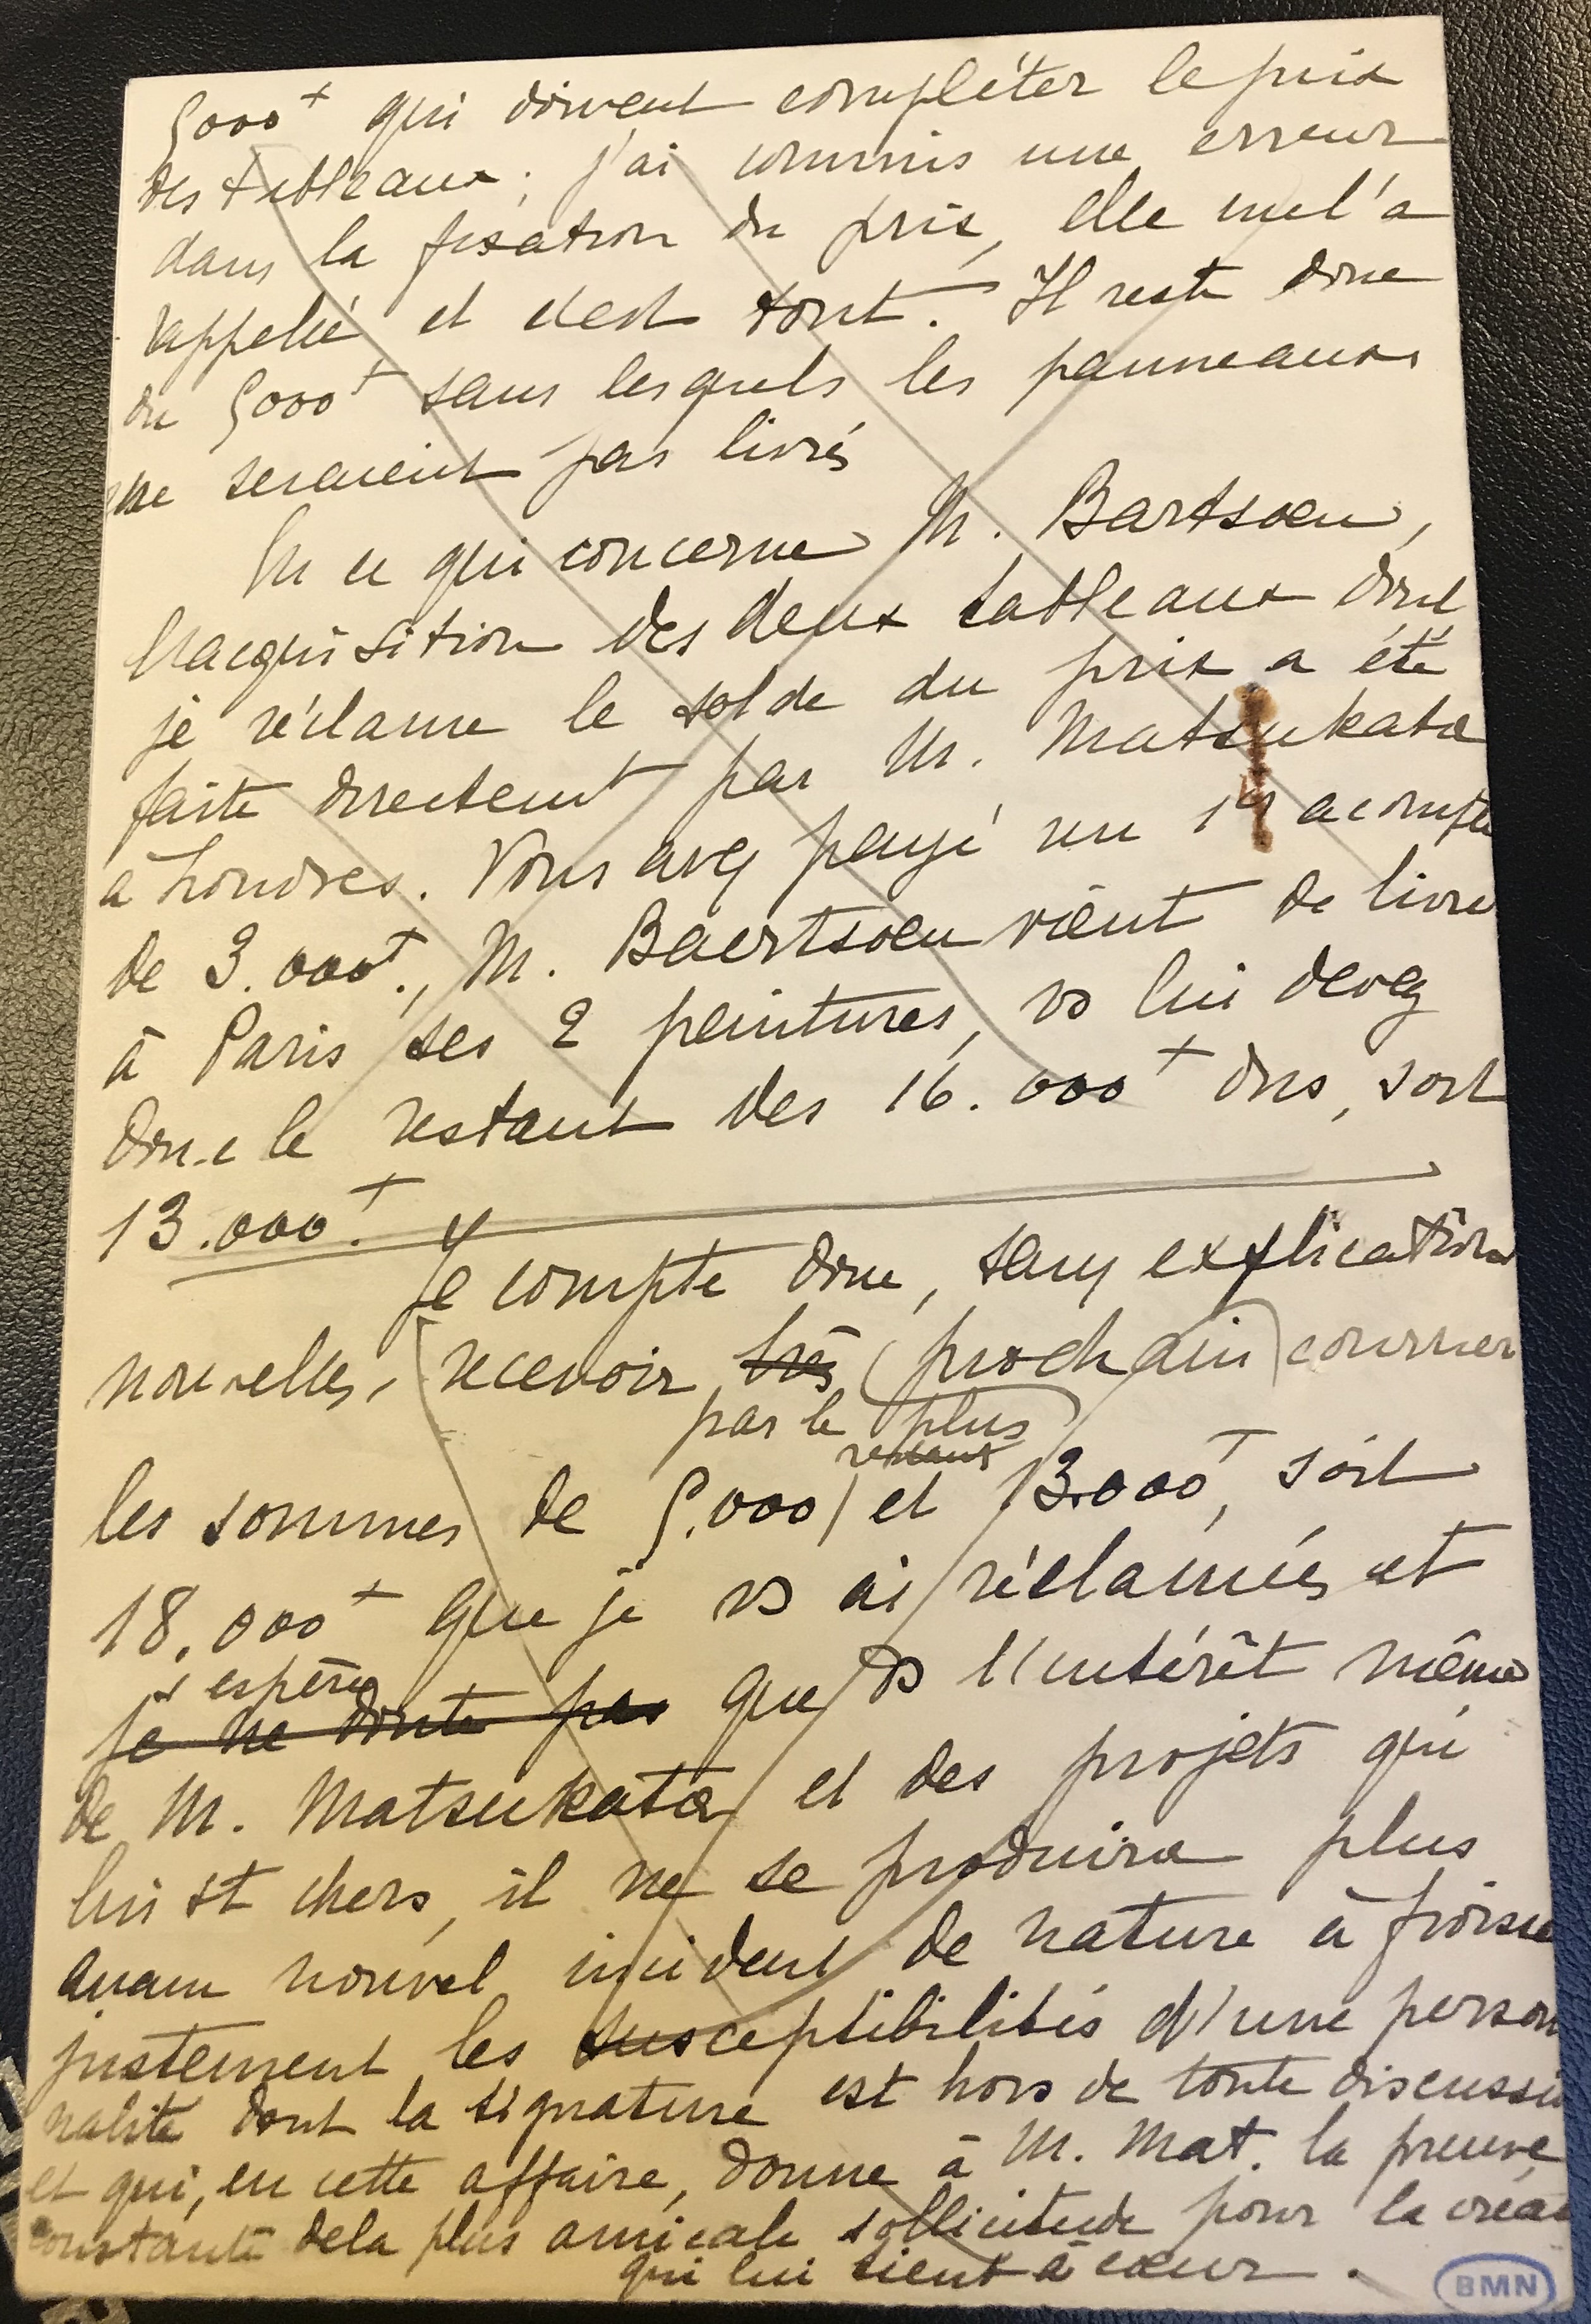 5000+ qui doivent compléter le prix
des tableaux; j'ai commis une erreur
dans la fixation du prix, elle me l'a
rappelé et c'est tout. Il reste donc
dû 5000+ sans lesquels les panneaux
ne seraient pas livrés
En ce qui concerne M. Bartsoen,
l'acquisition des deux tableaux dont
je réclame le solde du prix a été
faite directemt par M. Matsukata
à Londres. Vous avez payé un 1er acompte
de 3.000+., M. Baertsoen vient de livrer
à Paris ses 2 peintures, vs lui devez
donc le restant des 16.000+ dus, soit
13.000+.
Je compte donc, sans explications
nouvelles, recevoir très (prochain) courrier
par le plus
restant
les sommes de 5.000 et 13.000+, soit
18.000+ que je vs ai réclamées et
j'espère
je ne doute pas que ds l'intérêt même
de M. Matsukata et des projets qui
lui st chers, il ne se produira plus
aucun nouvel incident de nature à froisser
justement les susceptibilités d'une person
nalité dont la signature est hors de toute discussion
et qui, en cette affaire, donne à M. Mat. la preuve
constante de la plus amicale sollicitude pour la créat
qui lui tient à cœur.
BMN